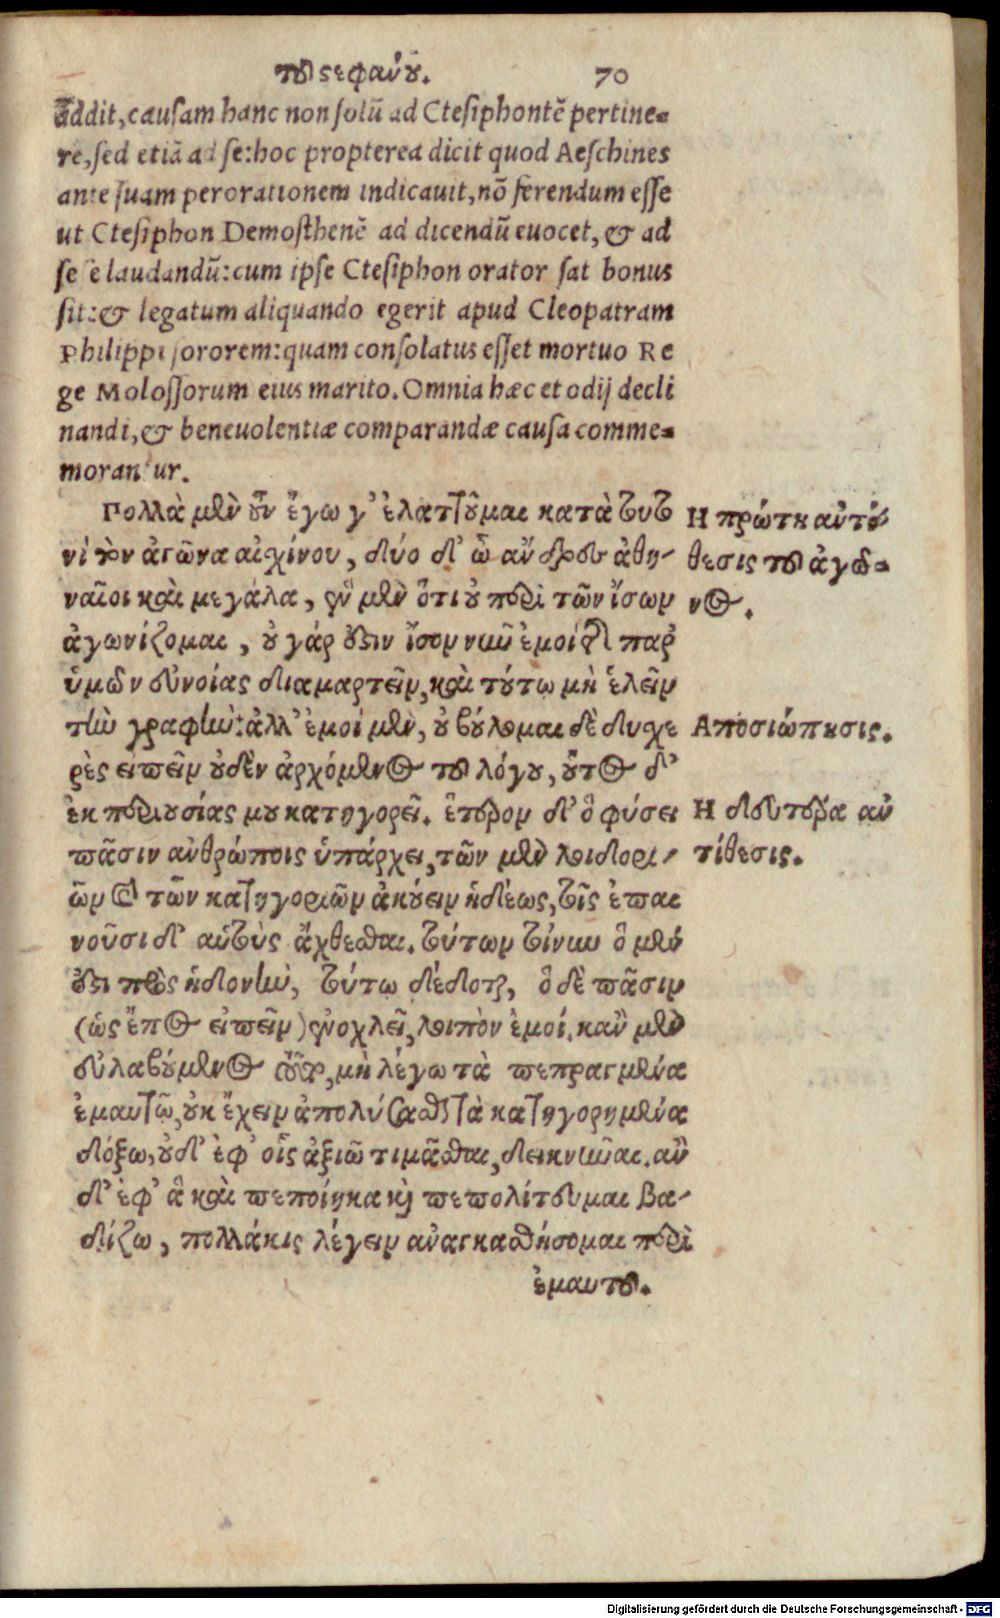 τοῦ στεφάνου. 70
addit, causam hanc non solū ad Ctesiphontē pertine=
re, sed etiā ad se: hoc propterea dicit quod Aeschines
ante suam perorationem indicauit, nō ferendum esse
ut Ctesiphon Demosthenē ad dicendū euocet, & ad
sese laudandū: cum ipse Ctesiphon orator sat bonus
sit: & legatum aliquando egerit apud Cleopatram
Philippi sororem: quam consolatus esset mortuo Re
ge Molossorum eius marito. Omnia hæc et odij decli
nandi, & beneuolentiæ comparandæ causa comme=
morantur.
Πολλὰ μὲν οὖν ἔγωγ' ἐλαττοῦμαι κατὰ τουτο
νὶ τὸν ἀγῶνα αἰσχίνου, δύο δ' ὦ ἄνδρες ἀθη-
ναῖοι καὶ μεγάλα, ἓν μὲν ὅτι οὐ περὶ τῶν ἴσων
ἀγωνίζομαι, οὐ γάρ ἐστιν ἴσον νῦν ἐμοί τε παρ
ὑμῶν εὐνοίας διαμαρτεῖν, καὶ τούτω μὴ ἑλεῖν
τὴν γραφὴν: ἀλλ' ἐμοὶ μὲν, οὐ βούλομαι δὲ δυχε
ρὲς εἰπεῖν οὐδὲν ἀρχόμενος τοῦ λόγου, οὗτος δ'
ἐκ περιουσίας μου κατηγορεῖ. ἕτερον δ' ὃ φύσει
πᾶσιν ἀνθρώποις ὑπάρχει, τῶν μὲν λοιδορι-
ῶν καὶ τῶν κατηγοριῶν ἀκούειν ἡδέως, τοῖς ἐπαι
νοῦσι δ' αὑτοὺς ἄχθεσθαι. τούτων τοίνυν ὃ μέν
ἐστι πρὸς ἡδονὴν, τούτω δέδοται, ὃ δὲ πᾶσιν
(ὡς ἔπος εἰπεῖν) ἐνοχλεῖ, λοιπὸν ἐμοί. κἂν μὲν
εὐλαβούμενος τοῦτο, μὴ λέγω τὰ πεπραγμένα
ἐμαυτῶ, οὐκ ἔχειν ἀπολύσασθαι τὰ κατηγορημένα
δόξω, οὐδ' ἐφ' οἷς ἀξιῶ τιμᾶσθαι, δεικνύναι. ἂν
δ' ἐφ' ἃ καὶ πεποίηκα καὶ πεπολίτευμαι βα-
δίζω, πολλάκις λέγειν ἀναγκασθήσομαι περὶ
ἐμαυτοῦ.
Η πρώτη ἀντί-
θεσις τοῦ ἀγῶ=
νος.
Αποσιώπησις.
Η δευτέρα ἀν
τίθεσις.
Digitalisierung gefördert durch die Deutsche Forschungsgemeinschaft - DFG